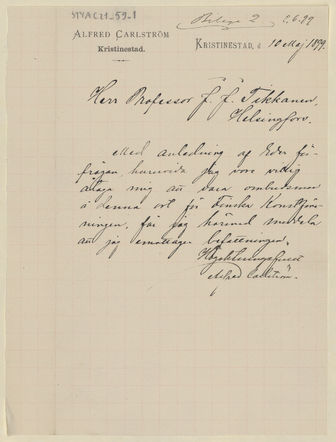 STYAC21_59_1
Bilaga 2 2.6.99
ALFRED CARLSTRÖM
Kristinestad.
KRISTINESTAD, d 10 Maj 1899.
Herr Professor J. J. Tikkanen,
Helsingfors.
Med anledning af Eder för-
frågan, huruvida jag vore villig
åtaga mig att vara ombudsman
å denna ort för Finska Konstföre-
ningen, får jag härmed meddela
att jag emottager befattningen.
Högaktningsfullt
Alfred Carlström.